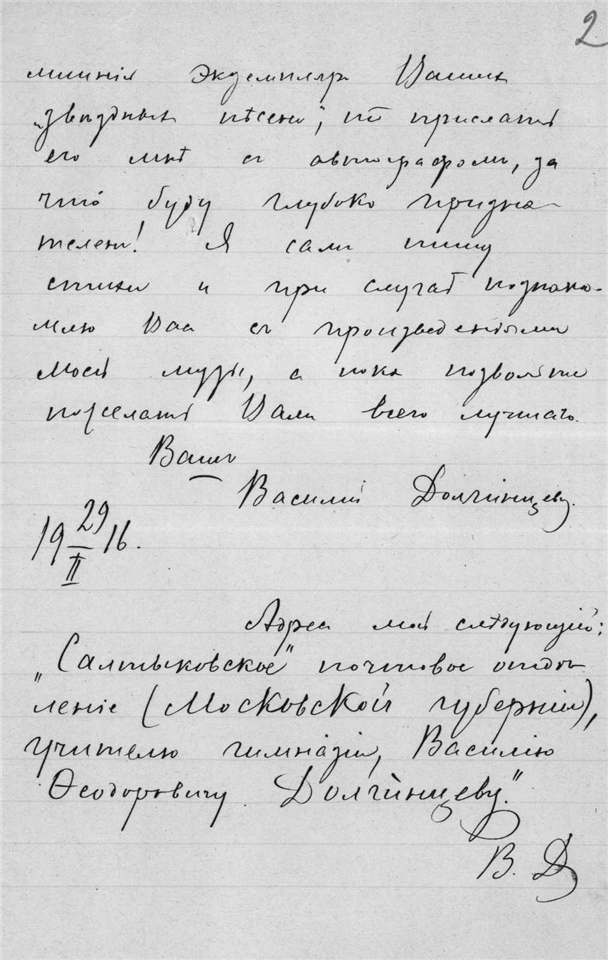 2
лишнiй экземпляръ Вашихъ
„звѣздныхъ пѣсенъ“, то прислать
его мнѣ съ автографомъ, за
что буду глубоко призна-
теленъ! Я самъ пишу
стихи и при случаѣ познако-
млю Васъ съ произведенiями
моей музы, а пока позвольте
пожелать Вамъ всего лучшаго.
Вашъ
Василiй Долгинцевъ.
19 29/II 16.
Адресъ мой слѣдующiй:
„Салтыковское“ почтовое отдѣ
ленiе (Московской губернiи),
учителю гимназiи, Василiю
Ѳеодоровичу Долгинцеву.“
В. Д.